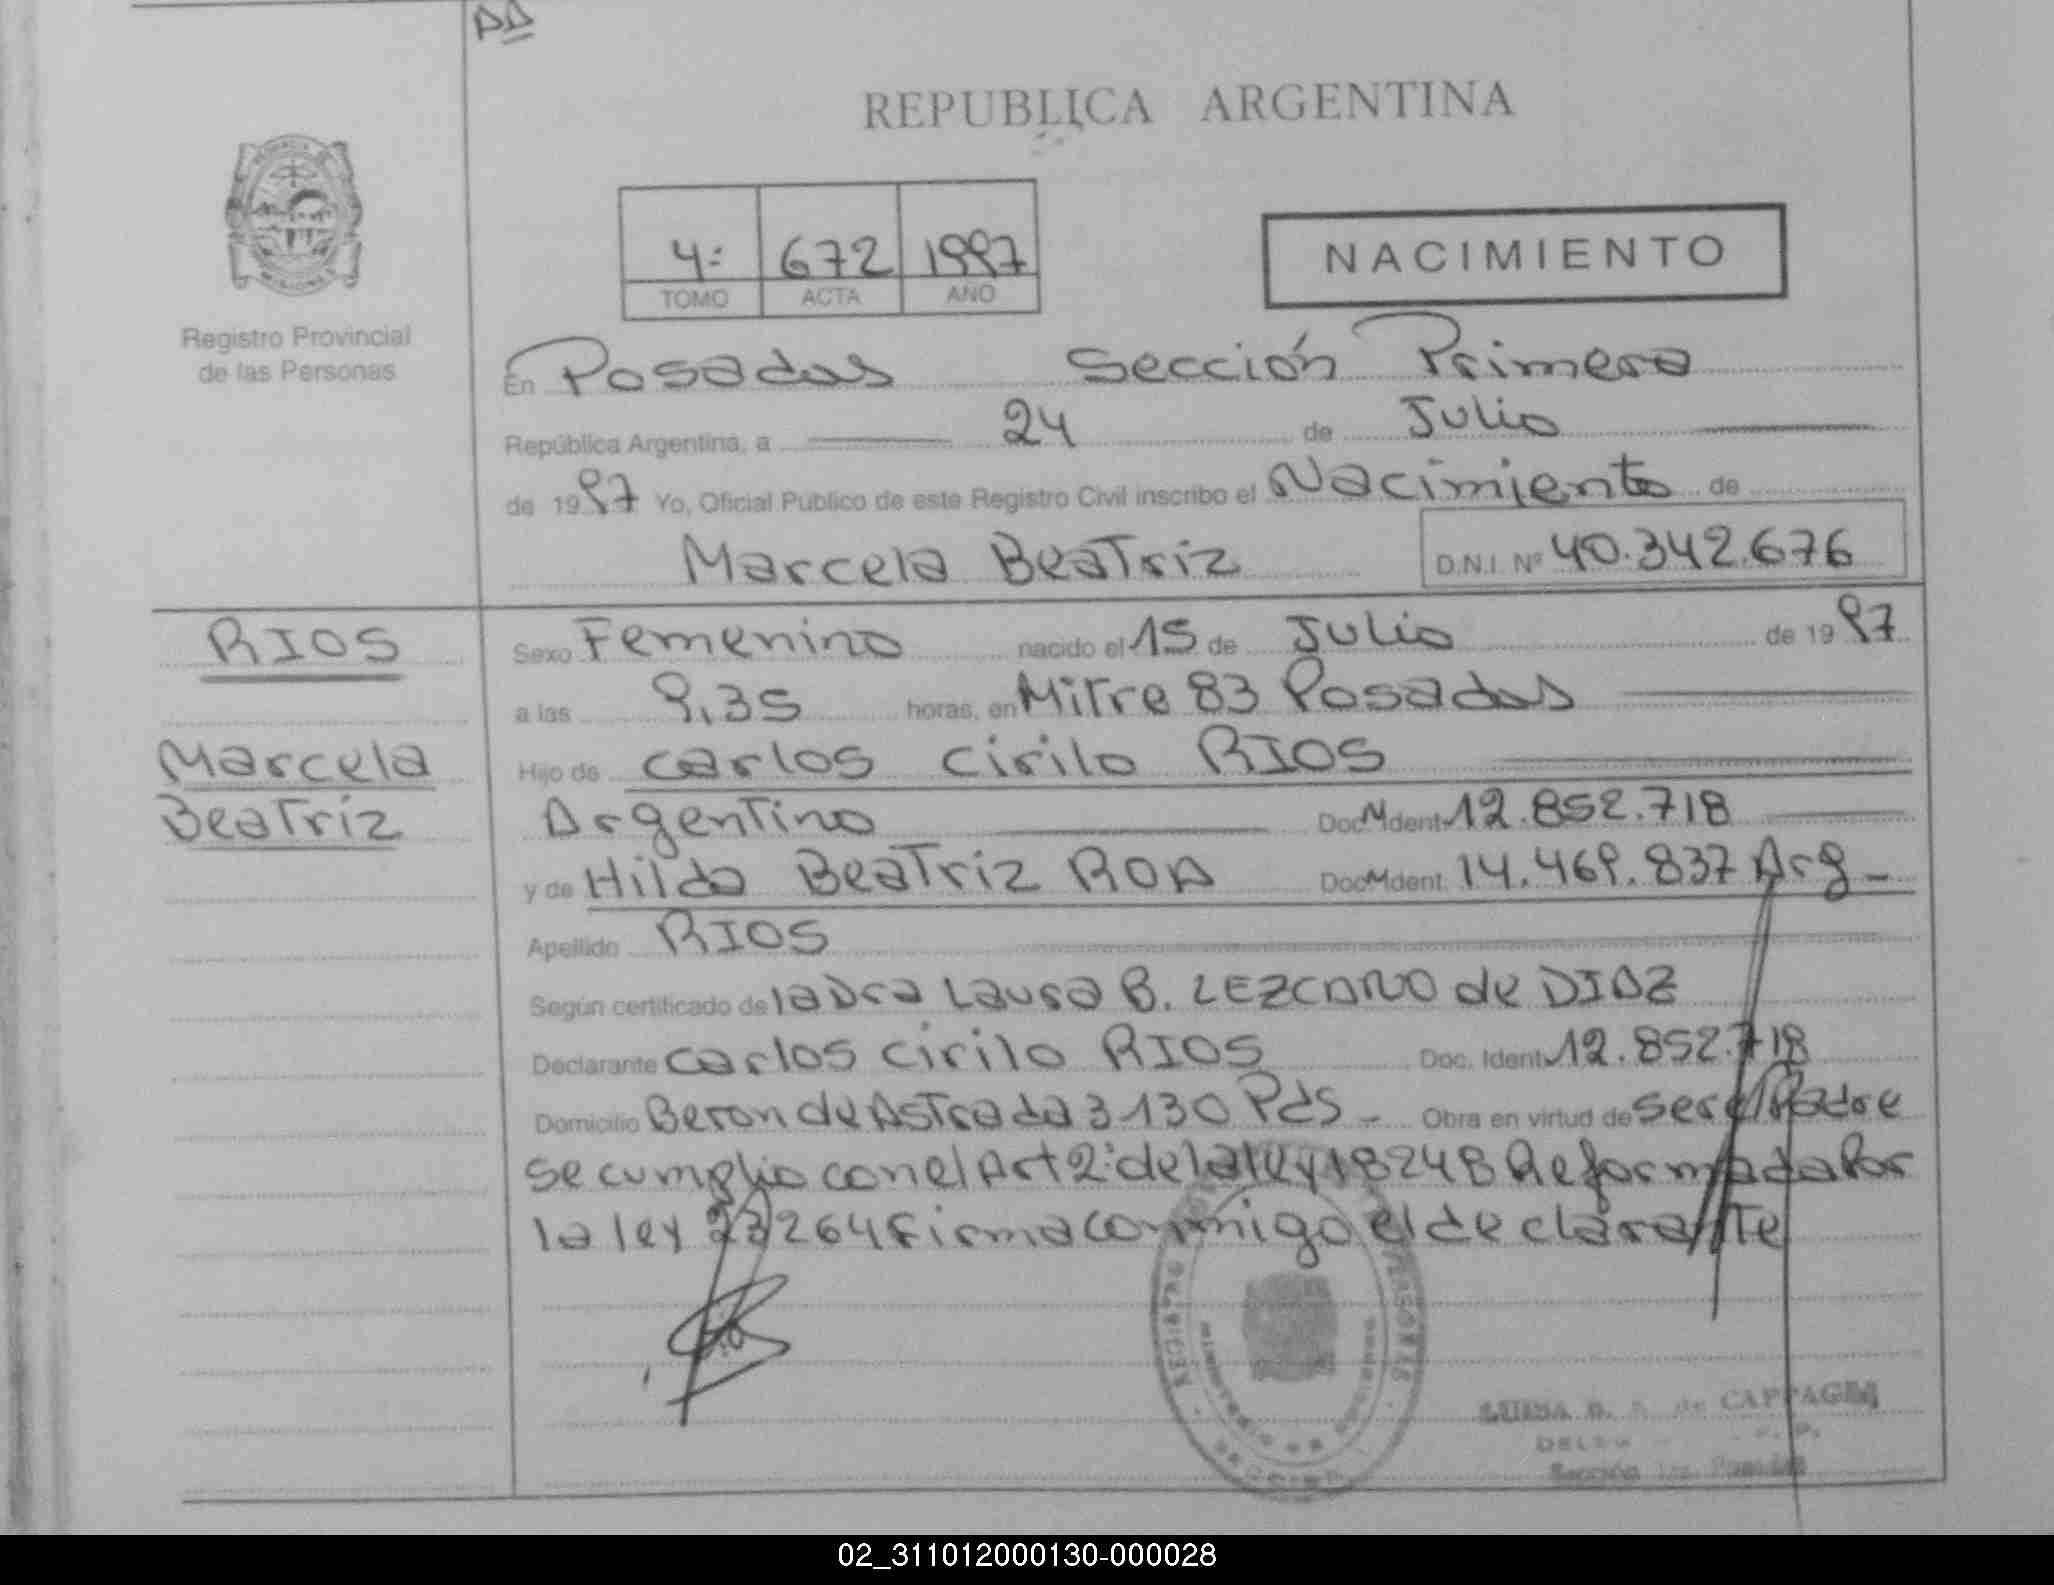 REPUBLICA ARGENTINA
4: 672 1997
TOMO ACTA AÑO
NACIMIENTO
Registro Provincial
de las Personas
En Posadas Sección Primera
República Argentina, a 24 de Julio
de 1997 Yo, Oficial Público de este Registro Civil inscribo el Nacimiento de
Marcela Beatriz D.N.I. Nº 40.342.676
RIOS
Marcela
Beatriz
Sexo Femenino nacido el 15 de Julio de 1997
a las 9,35 horas, en Mitre 83 Posadas
Hijo de Carlos Cirilo RIOS
Argentino Doc. Ident. 12.852.718
y de Hilda Beatriz ROA Doc. Ident. 14.469.837 Arg -
Apellido RIOS
Según certificado de la Dra Laura B. LEZCANO de DIAZ
Declarante Carlos Cirilo RIOS Doc. Ident. 12.852.718
Domicilio Beron de Astrada 3130 Pds - Obra en virtud de ser el Padre
se cumplio con el Art 2: de la ley 18248 Reformada Por
la ley 23264 firma conmigo el declarante
LUISA de CAPPAGLI
Sección 1ra. Posadas
02_311012000130-000028